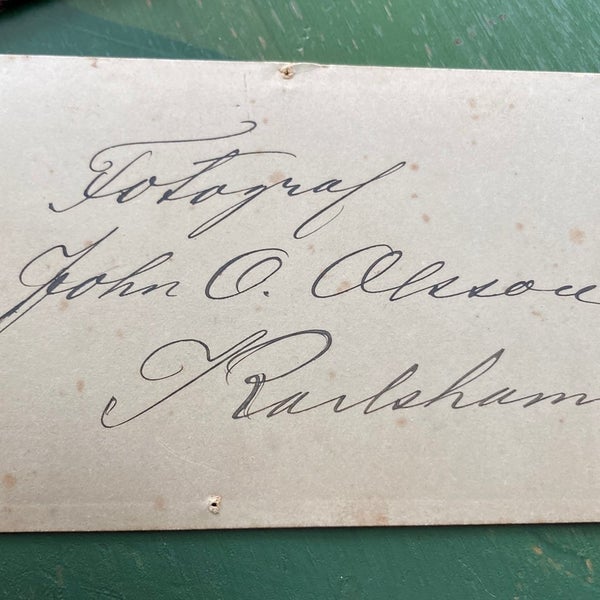 Fotograf
John O. Olsson
Karlshamn